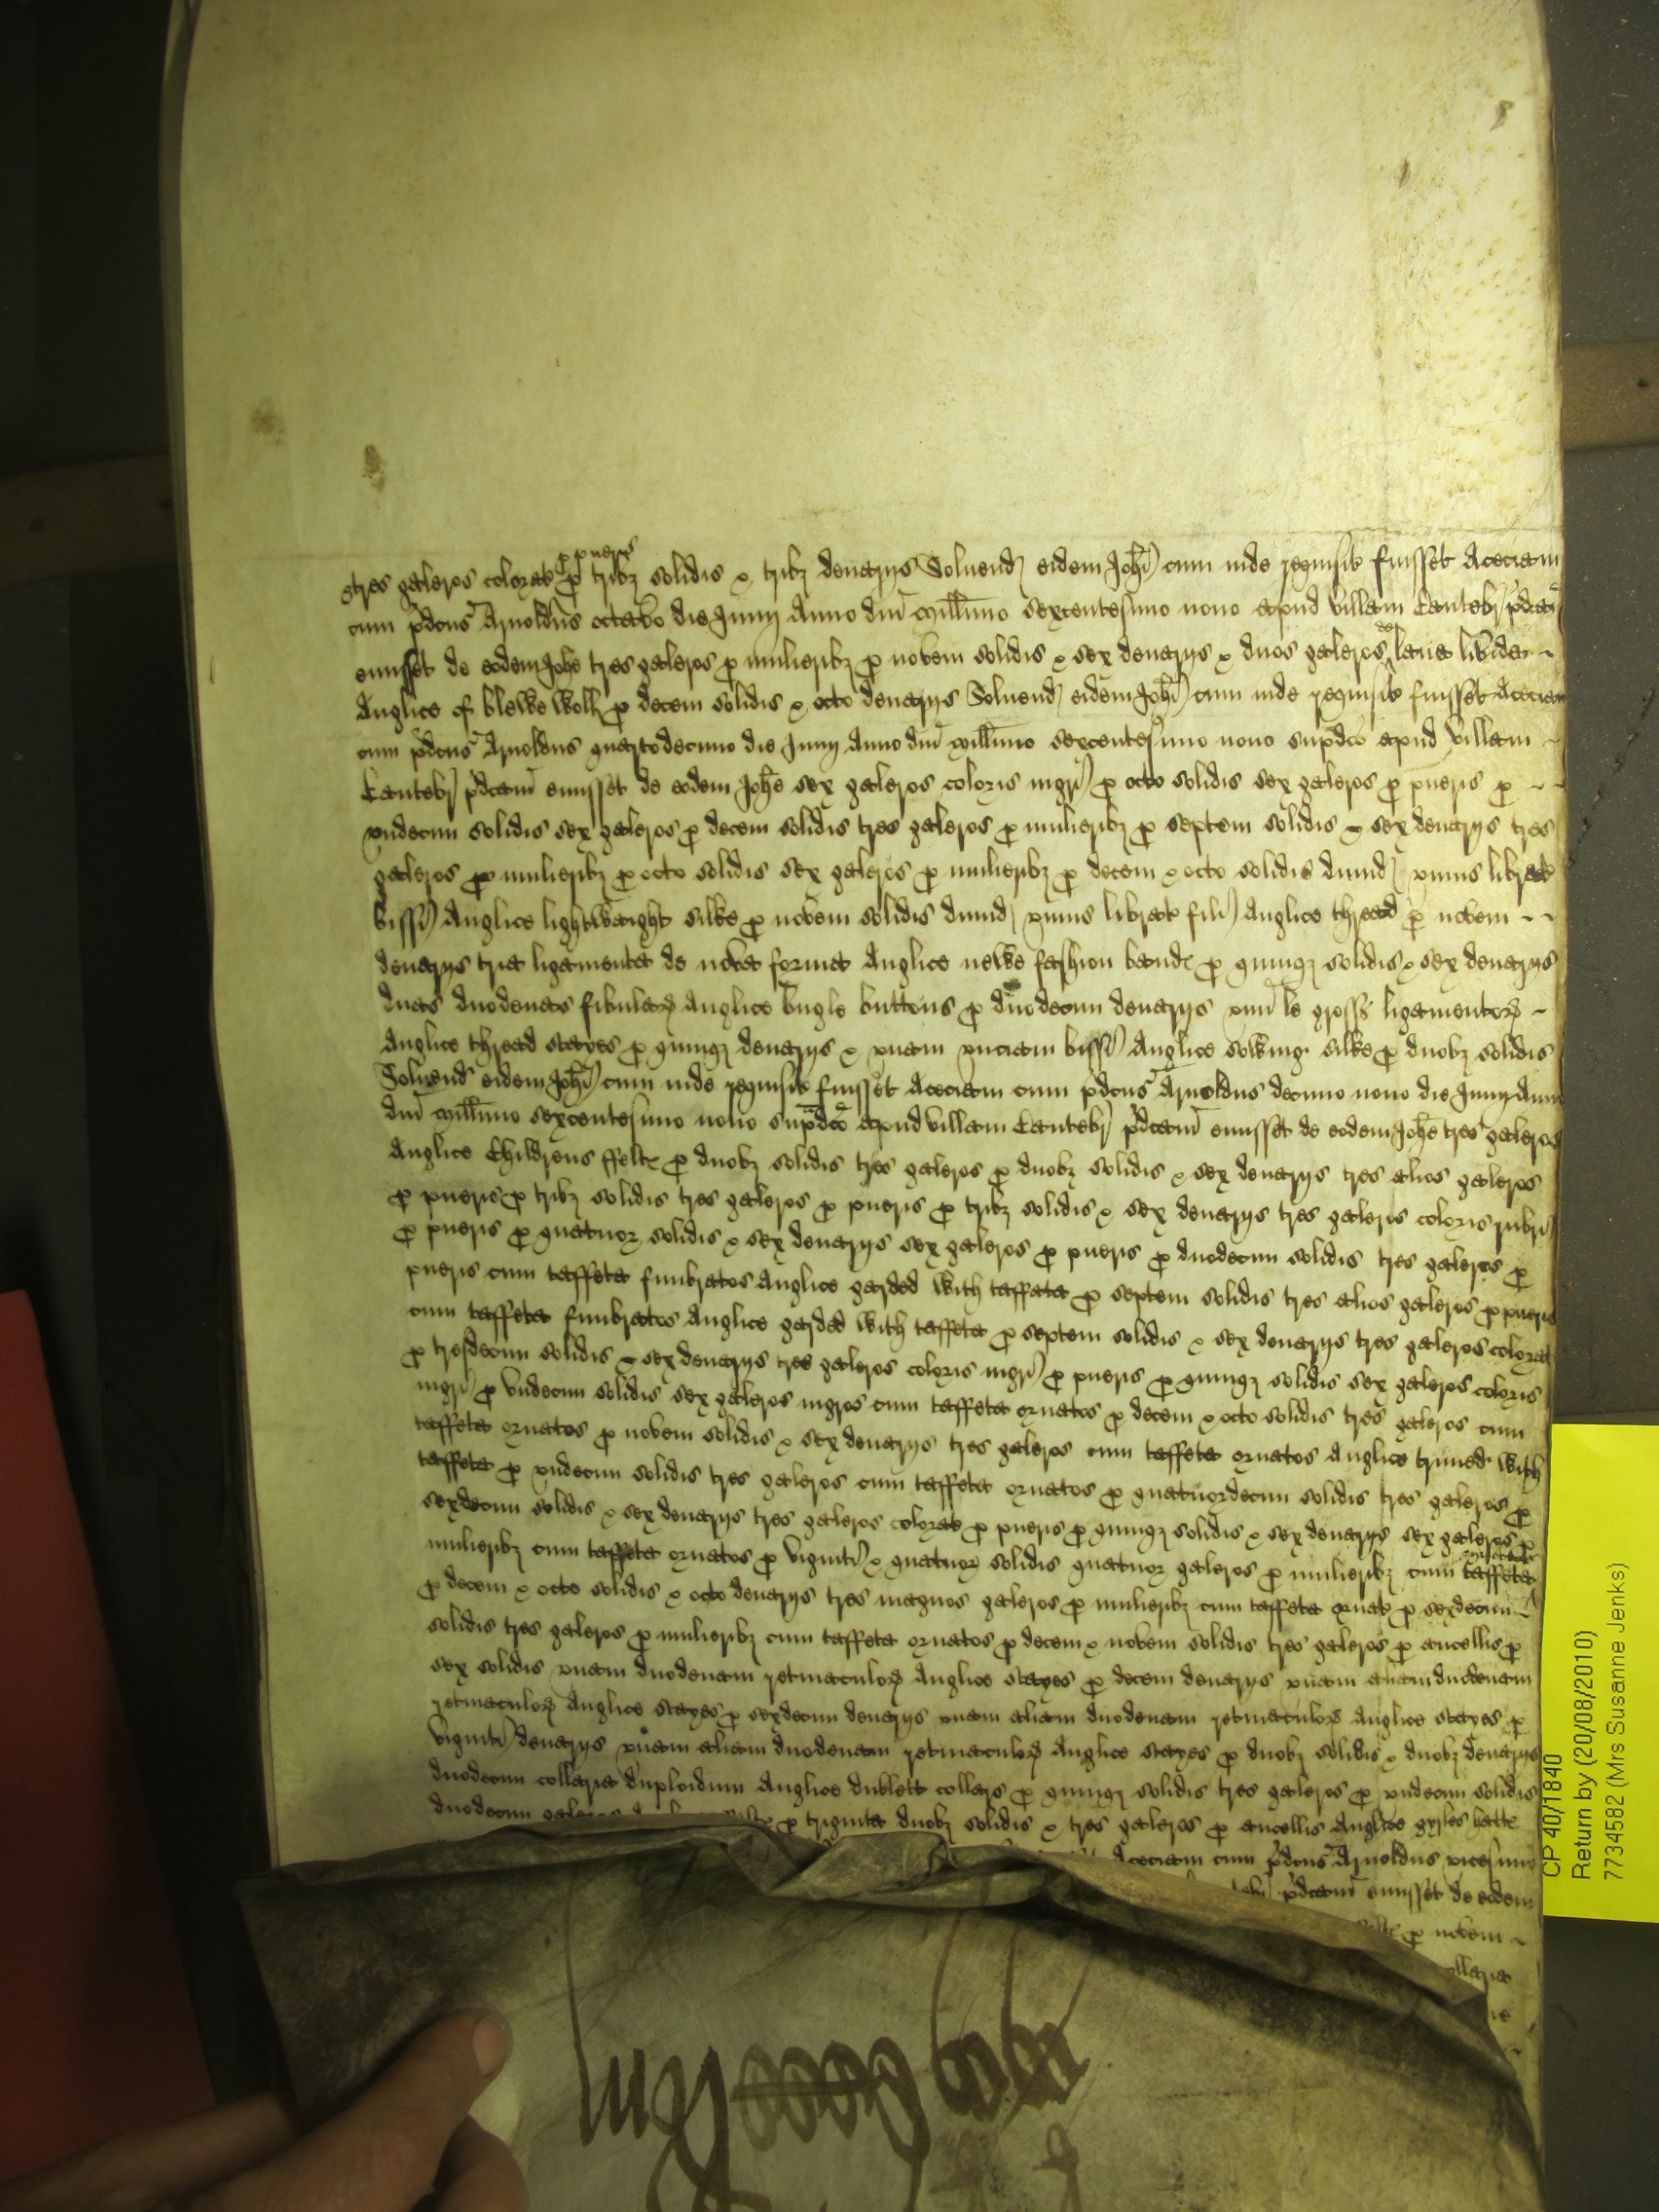 tres galeros colorat p pueris p tribz solidis & tribz denarijs Solvend eidem Johi cum inde requisit fuisset Aceciam
cum pdcus Arnoldus octavo die Junij Anno dni millimo sexcentesimo nono apud villam Cantebr pdcam
emisset de eodem Johe tres galeros p mulieribz p novem solidis & sex denarijs & duos galeros de lana livida
Anglice of blewe woll p decem solidis & octo denarijs Solvend eidem Johi cum inde requisit fuisset Aceciam
cum pdcus Arnoldus quartodecimo die Junij Anno dni millimo sexcentesimo nono supdco apud villam
Cantebr pdcam emisset de eodem Johe sex galeros coloris nigri p octo solidis sex galeros p pueris p
undecim solidis sex galeros p decem solidis tres galeros p mulieribz p septem solidis & sex denarijs tres
galeros p mulieribz p octo solidis sex galeros p mulieribz p decem & octo solidis dimid unius librat
bissi Anglice lightwaight silke p novem solidis dimid unius librat fili Anglice thread p novem
denarijs tria ligamenta de nova forma Anglice newe fashion bande p quinqz solidis & sex denarijs
duas duodenas fibular Anglice bugle buttons p duodecim denarijs unu le grosse ligamentor
Anglice thread stayes p quinqz denarijs & unam unciam bissi Anglice sowing silke p duobz solidis
Solvend eidem Johi cum inde requisit fuisset Aceciam cum pdcus Arnoldus decimo nono die Junij Anno
dni millimo sexcentesimo nono supdco apud villam Cantebr pdcam emisset de eodem Johe tres galeros
Anglice Childrens ffelte p duobz solidis tres galeros p duobz solidis & sex denarijs tres alios galeros
p pueris p tribz solidis tres galeros p pueris p tribz solidis & sex denarijs tres galeris coloris rubri
p pueris p quatuor solidis & sex denarijs sex galeros p pueris p duodecim solidis tres galeros p
pueris cum taffeta fimbratos Anglice garded with taffata p septem solidis tres alios galeros p pueris
cum taffeta fimbratos Anglice garded with taffeta p septem solidis & sex denarijs tres galeros colorat
p tresdecim solidis & sex denarijs tres galeros coloris nigri p pueris p quinqz solidis sex galeros coloris
nigri p undecim solidis sex galeros nigros cum taffeta ornatos p decem & octo solidis tres galeros cum
taffeta ornatos p novem solidis & sex denarijs tres galeros cum taffeta ornatos Anglice trimed with
taffeta p undecim solidis tres galeros cum taffeta ornatos p quatuordecim solidis tres galeros p
sexdecim solidis & sex denarijs tres galeros colorat p pueris p quinqz solidis & sex denarijs sex galeros p
mulieribz cum taffeta ornatos p viginti & quatuor solidis quatuor galeros p mulieribz cum taffeta
p decem & octo solidis & octo denarijs tres magnos galeros p mulieribz cum taffeta ornat p sexdecim
solidis tres galeros p mulieribz cum taffeta ornatos p decem & novem solidis tres galeros p ancellis p
sex solidis unam duodenam retinaculor Anglice stayes p decem denarijs unam aliam duodenam
retinaculor Anglice stayes p sexdecim denarijs unam aliam duodenam retinaculor Anglice stayes p
viginti denarijs unam aliam duodenam retinaculor Anglice stayes p duobz solidis & duobz denarijs
duodecim collaria duploidum Anglice dublett collars p quinqz solidis tres galeros p undecim solidis
duodecim galeros p triginta duobz solidis & tres galeros p ancellis Anglice gyrles hatte
Aceciam cum pdcus Arnoldus vicesimo
pdcam emisset de eodem
p novem
collaria
CP 40/1840
Return by (20/08/2010)
7734582 (Mrs Susanne Jenks)